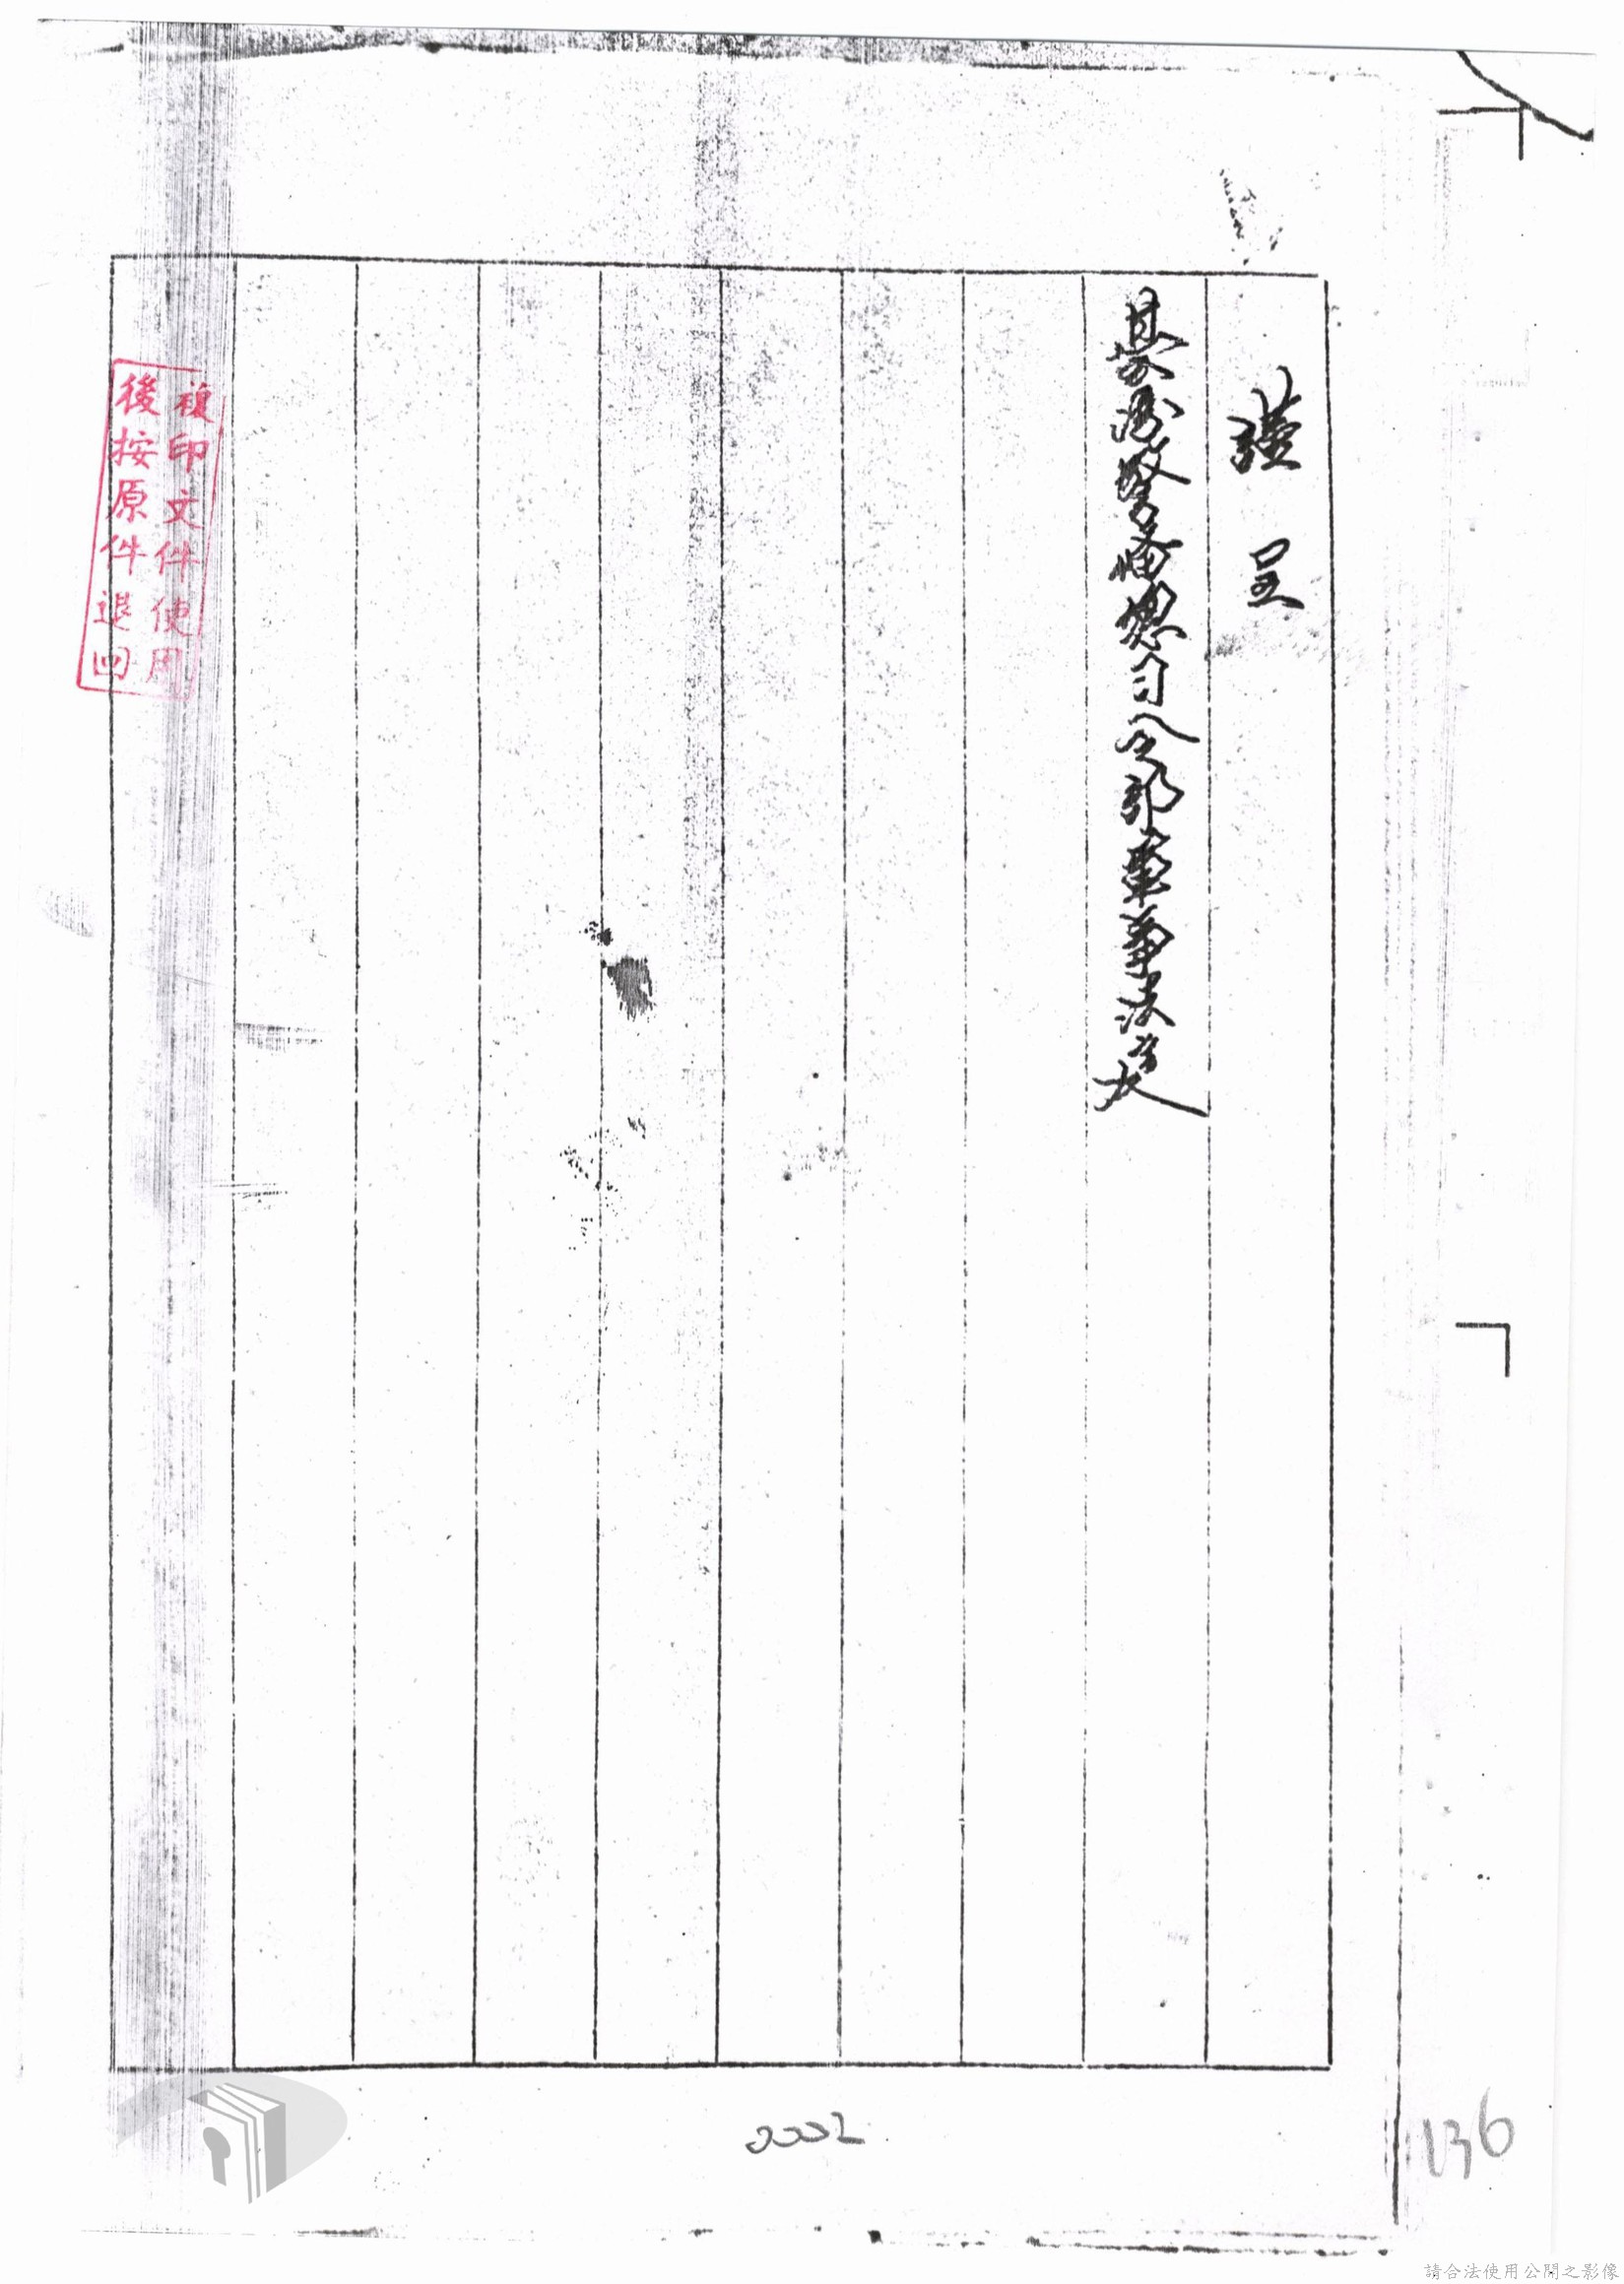 謹呈
臺灣警備總司令部軍事法庭
複印文件使用
後按原件退回
0002
136
請合法使用公開之影像